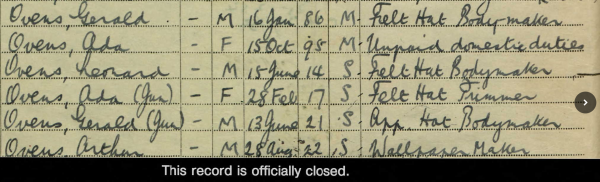 Ovens, Gerald . - M 16 Jan 86 M- Felt Hat Bodymaker
Ovens, Ada - F 15 Oct 95 M- Unpaid domestic duties
Ovens, Leonard - M 15 June 14 S- Felt Hat Bodymaker
Ovens, Ada (Jun) - F 28 Feb 17 S- Felt Hat Trimmer
Ovens, Gerald (Jun) - M 13 June 21 S- App. Hat Bodymaker
Ovens, Arthur - M 28 Aug 22 S- Wallpaper Maker
This record is officially closed.